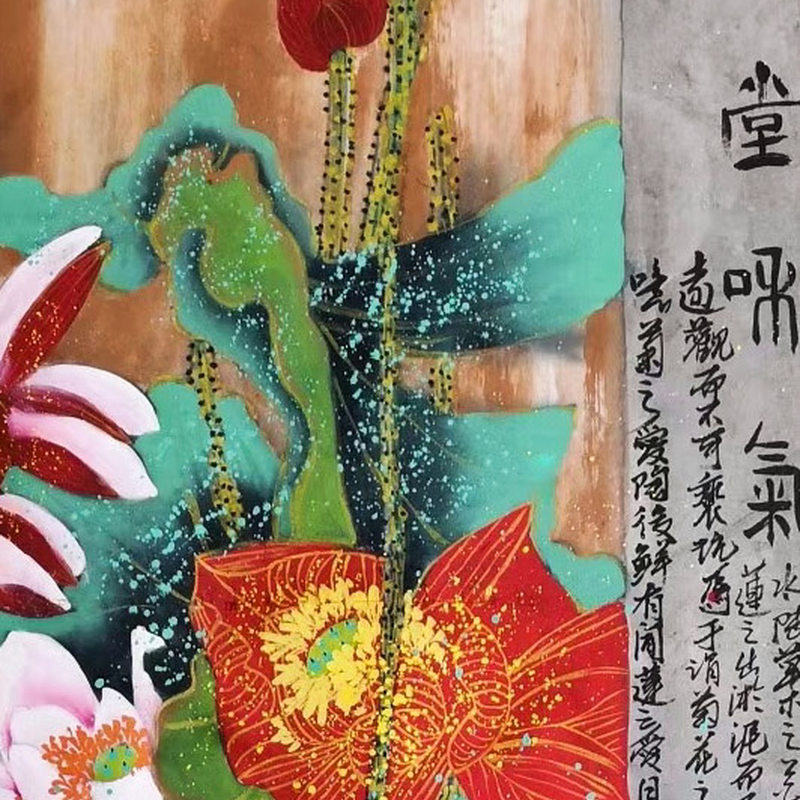 堂咊氣
水陸草木之
蓮之出淤泥而
遠觀而不可褻玩焉于謂菊花之
噫菊之愛陶後鮮有聞蓮之愛